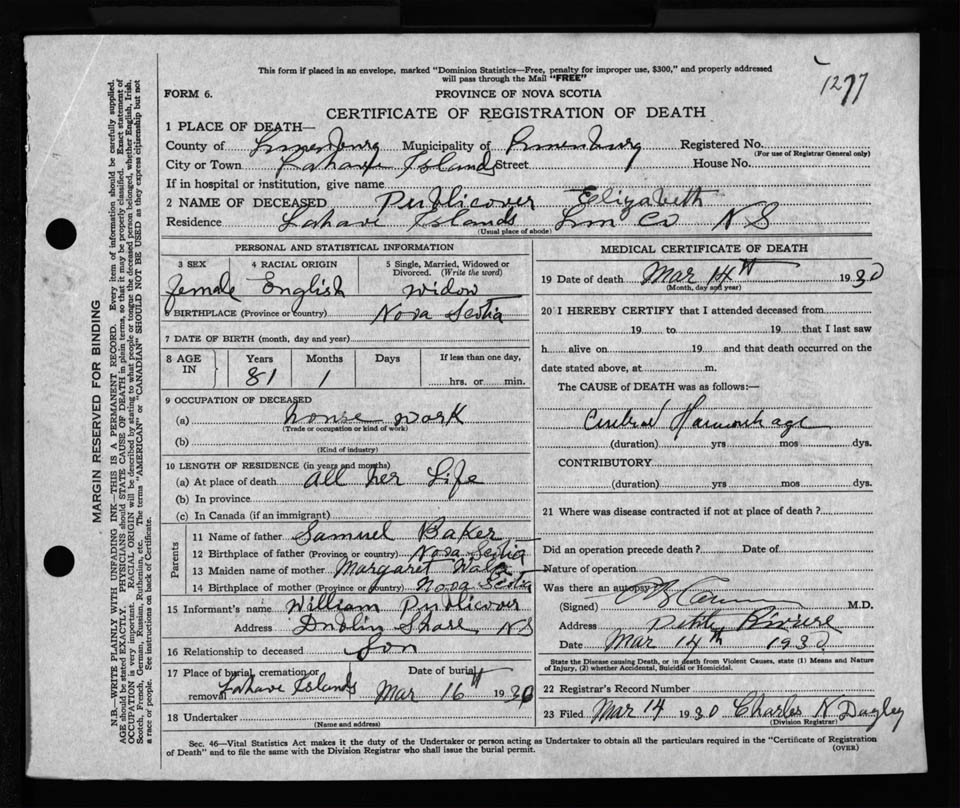 This form if placed in an envelope, marked "Dominion Statistics—Free, penalty for improper use, $300," and properly addressed
will pass through the Mail "FREE"
1277
FORM 6.
PROVINCE OF NOVA SCOTIA
CERTIFICATE OF REGISTRATION OF DEATH
1 PLACE OF DEATH—
County of Lunenburg Municipality of Lunenburg Registered No.
(For use of Registrar General only)
City or Town Lahave Islands Street House No.
If in hospital or institution, give name
2 NAME OF DECEASED Publicover Elizabeth
Residence Lahave Islands Lun Co N S
(Usual place of abode)
PERSONAL AND STATISTICAL INFORMATION
3 SEX 4 RACIAL ORIGIN 5 Single, Married, Widowed or
Divorced. (Write the word)
female English widow
6 BIRTHPLACE (Province or country) Nova Scotia
7 DATE OF BIRTH (month, day and year)
8 AGE IN Years Months Days If less than one day,
81 1 hrs. or min.
9 OCCUPATION OF DECEASED
(a) house work
(Trade or occupation or kind of work)
(b)
(Kind of industry)
10 LENGTH OF RESIDENCE (in years and months)
(a) At place of death all her Life
(b) In province
(c) In Canada (if an immigrant)
Parents
11 Name of father Samuel Baker
12 Birthplace of father (Province or country) Nova Scotia
13 Maiden name of mother Margaret
14 Birthplace of mother (Province or country) Nova Scotia
15 Informant's name William Publicover
Address Dublin Shore NS
16 Relationship to deceased Son
17 Place of burial, cremation or Date of burial
removal Lahave Islands Mar 16th 1930
18 Undertaker
(Name and address)
MEDICAL CERTIFICATE OF DEATH
19 Date of death Mar 14th 1930
(Month, day and year)
20 I HEREBY CERTIFY that I attended deceased from
19 to 19 that I last saw
h alive on 19 and that death occurred on the
date stated above, at m.
The CAUSE OF DEATH was as follows:—
Cerebral Haemorrhage
(duration) yrs mos dys.
CONTRIBUTORY
(duration) yrs mos dys.
21 Where was disease contracted if not at place of death?
Did an operation precede death? Date of
Nature of operation
Was there an autopsy
(Signed) M.D.
Address Petite Riviere
Date Mar 14th 1930
State the Disease causing Death, or in death from Violent Causes, state (1) Means and Nature
of Injury, (2) whether Accidental, Suicidal or Homicidal.
22 Registrar's Record Number
23 Filed Mar 14 1930 Charles N Dagley
(Division Registrar)
Sec. 46—Vital Statistics Act makes it the duty of the Undertaker or person acting as Undertaker to obtain all the particulars required in the "Certificate of Registration
of Death" and to file the same with the Division Registrar who shall issue the burial permit. (OVER)
MARGIN RESERVED FOR BINDING
N.B.—WRITE PLAINLY WITH UNFADING INK—THIS IS A PERMANENT RECORD. Every item of information should be carefully supplied.
AGE should be stated EXACTLY. PHYSICIANS should STATE CAUSE OF DEATH in plain terms, so that it may be properly classified. Exact statement of
OCCUPATION is very important. RACIAL ORIGIN will be described by stating to what people or tongue the deceased person belonged, whether English, Irish,
Scotch, French, German, Russian, Ruthenian, etc. The terms "AMERICAN" or "CANADIAN" SHOULD NOT BE USED as they express citizenship but not
a race or people. See instructions on back of Certificate.